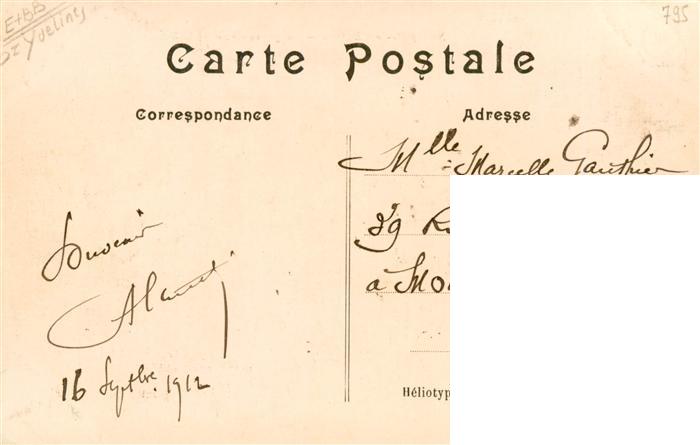 E+BB
Yvelines
795
Carte Postale
Correspondance
Adresse
Mlle Marcelle Gauthier
39 R
à Mo
Souvenir
16 Septbre 1912
Héliotyp